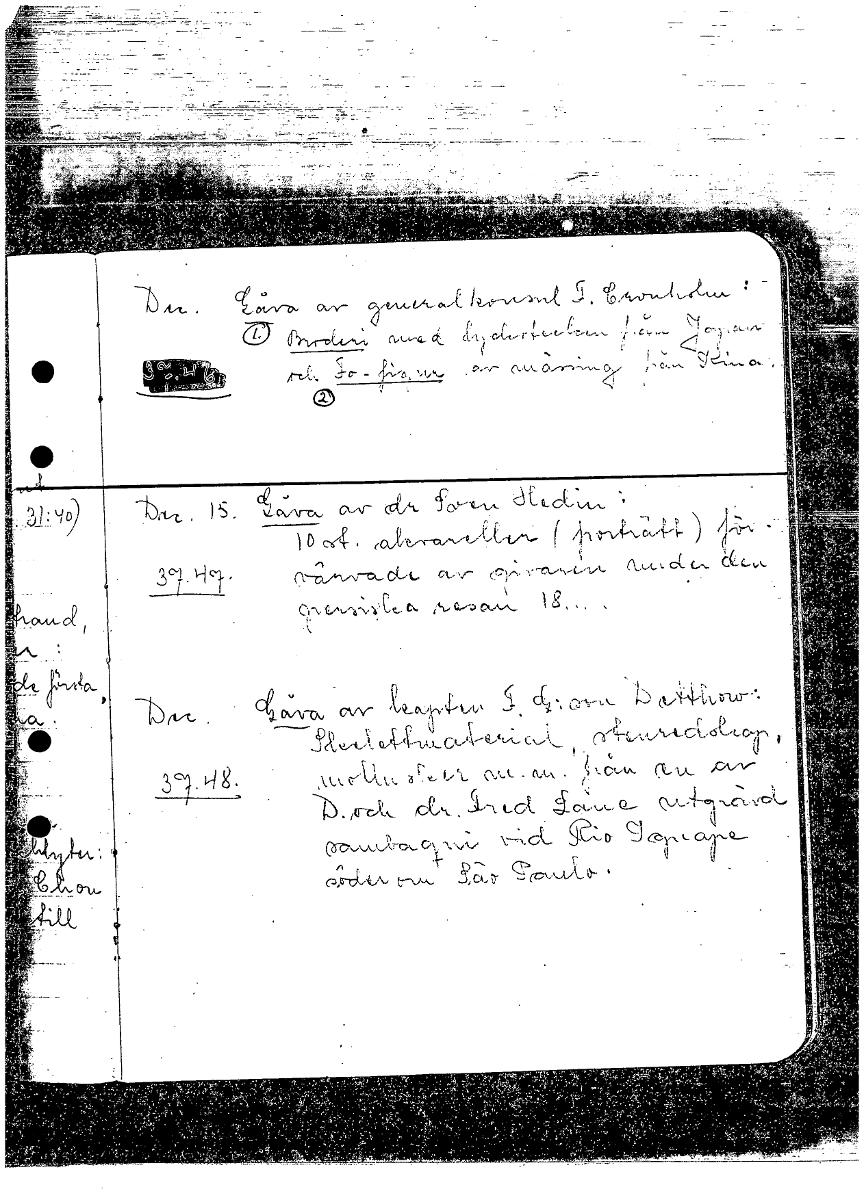 Dec. Gåva av generalkonsul F. Cronholm:
① Broderi med lyckotecken från Japan
39.46
och Fo-figur av mässing från Kina.
②
Dec. 15. Gåva av dr Sven Hedin:
10 st. akvareller (porträtt) för-
39.47. värvade av givaren under den
persiska resan 18....
Dec. Gåva av kapten F. G:son Detthow:
Skelettmaterial, stenredskap,
39.48. mollusker m.m. från en av
D. och dr. Fred Lane utgrävd
sambaqui vid Rio
söder om São Paulo.
31:40)
hand,
de första,
Chou
till